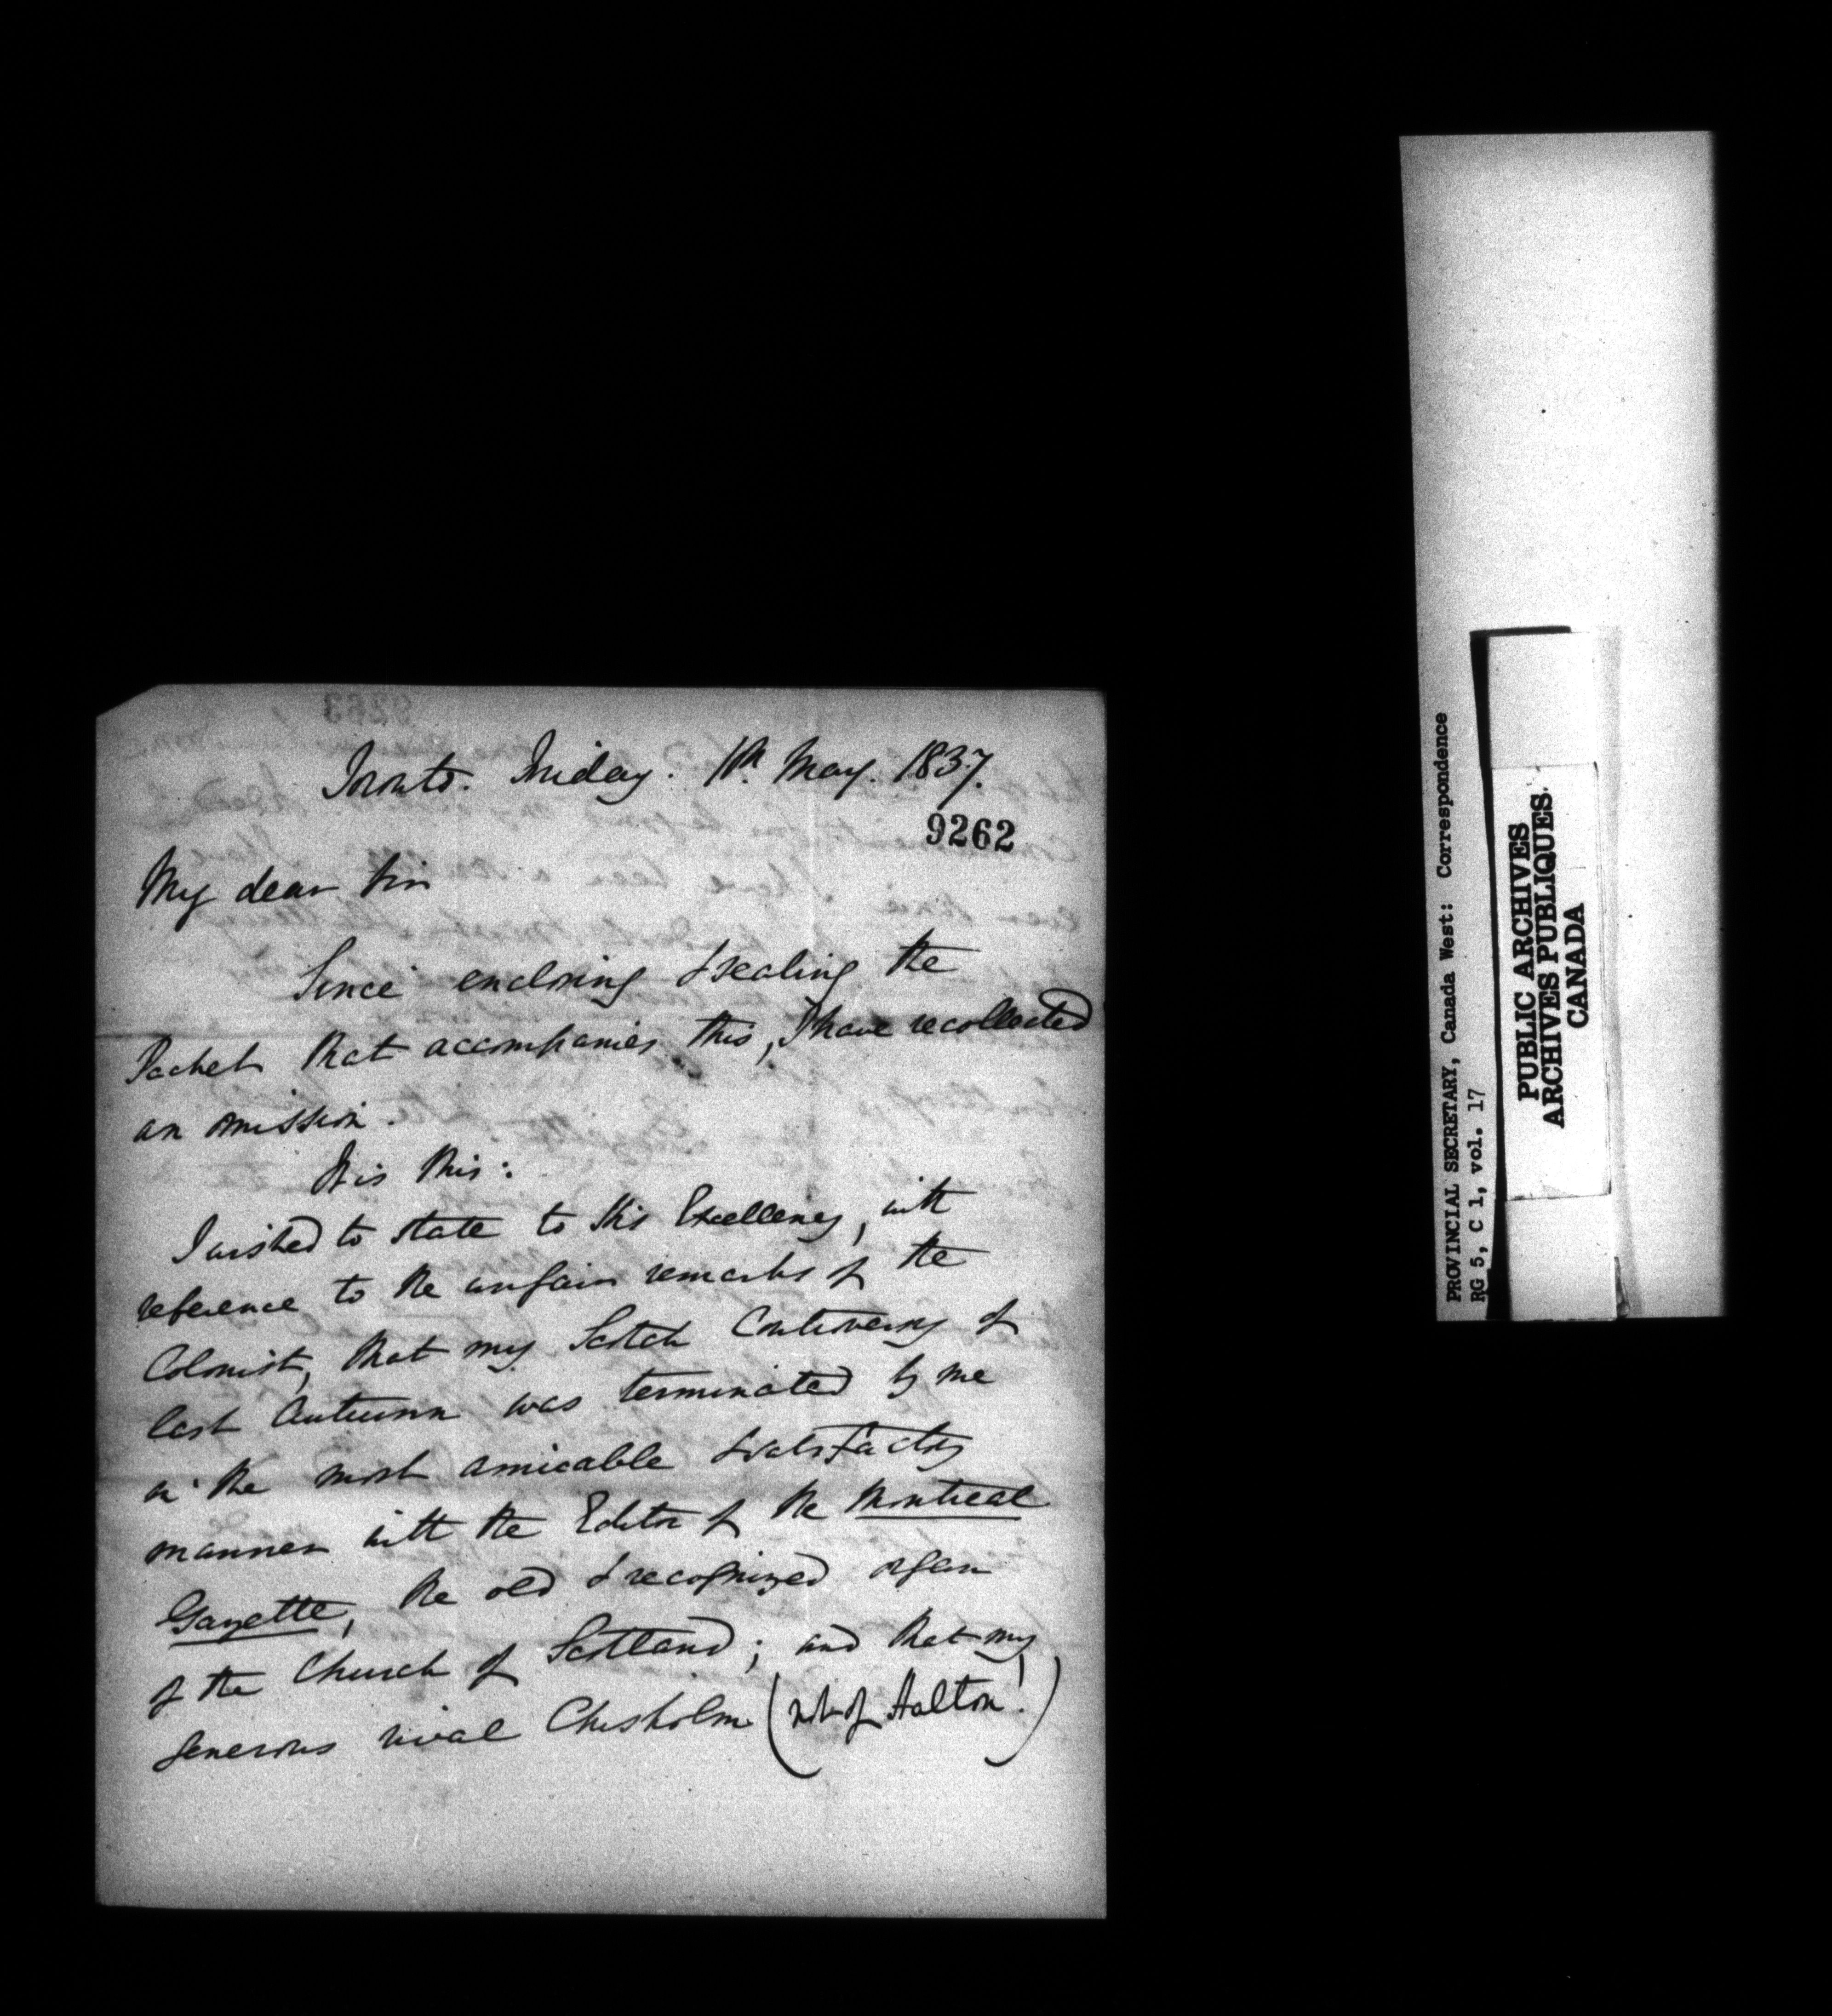 Toronto. Friday. 11th May. 1837.
9262
My dear Sir
Since enclosing & sealing the
Packet that accompanies this, I have recollected
an omission.
It is this:
I wished to state to His Excellency, with
reference to the unfair remarks of the
Colonist, that my Scotch Controversy of
last Autumn was terminated by me
in the most amicable & satisfactory
manner with the Editor of the Montreal
Gazette, the old & recognized organ
of the Church of Scotland; and that my
generous rival Chisholm (not of Halton!)
PROVINCIAL SECRETARY, Canada West: Correspondence
RG 5, C 1, vol. 17
PUBLIC ARCHIVES
ARCHIVES PUBLIQUES
CANADA